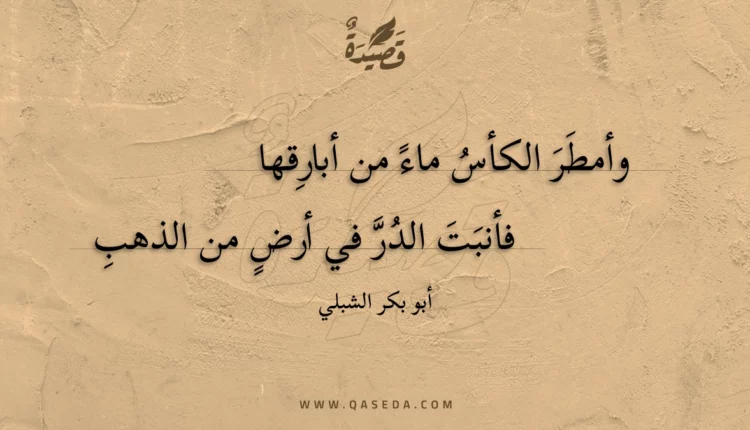 قَصِيْدَةٌ
وأمطَرَ الكأسُ ماءً من أبارِقِها
فأنبَتَ الدُرَّ في أرضٍ من الذهبِ
أبو بكر الشبلي
WWW.QASEDA.COM